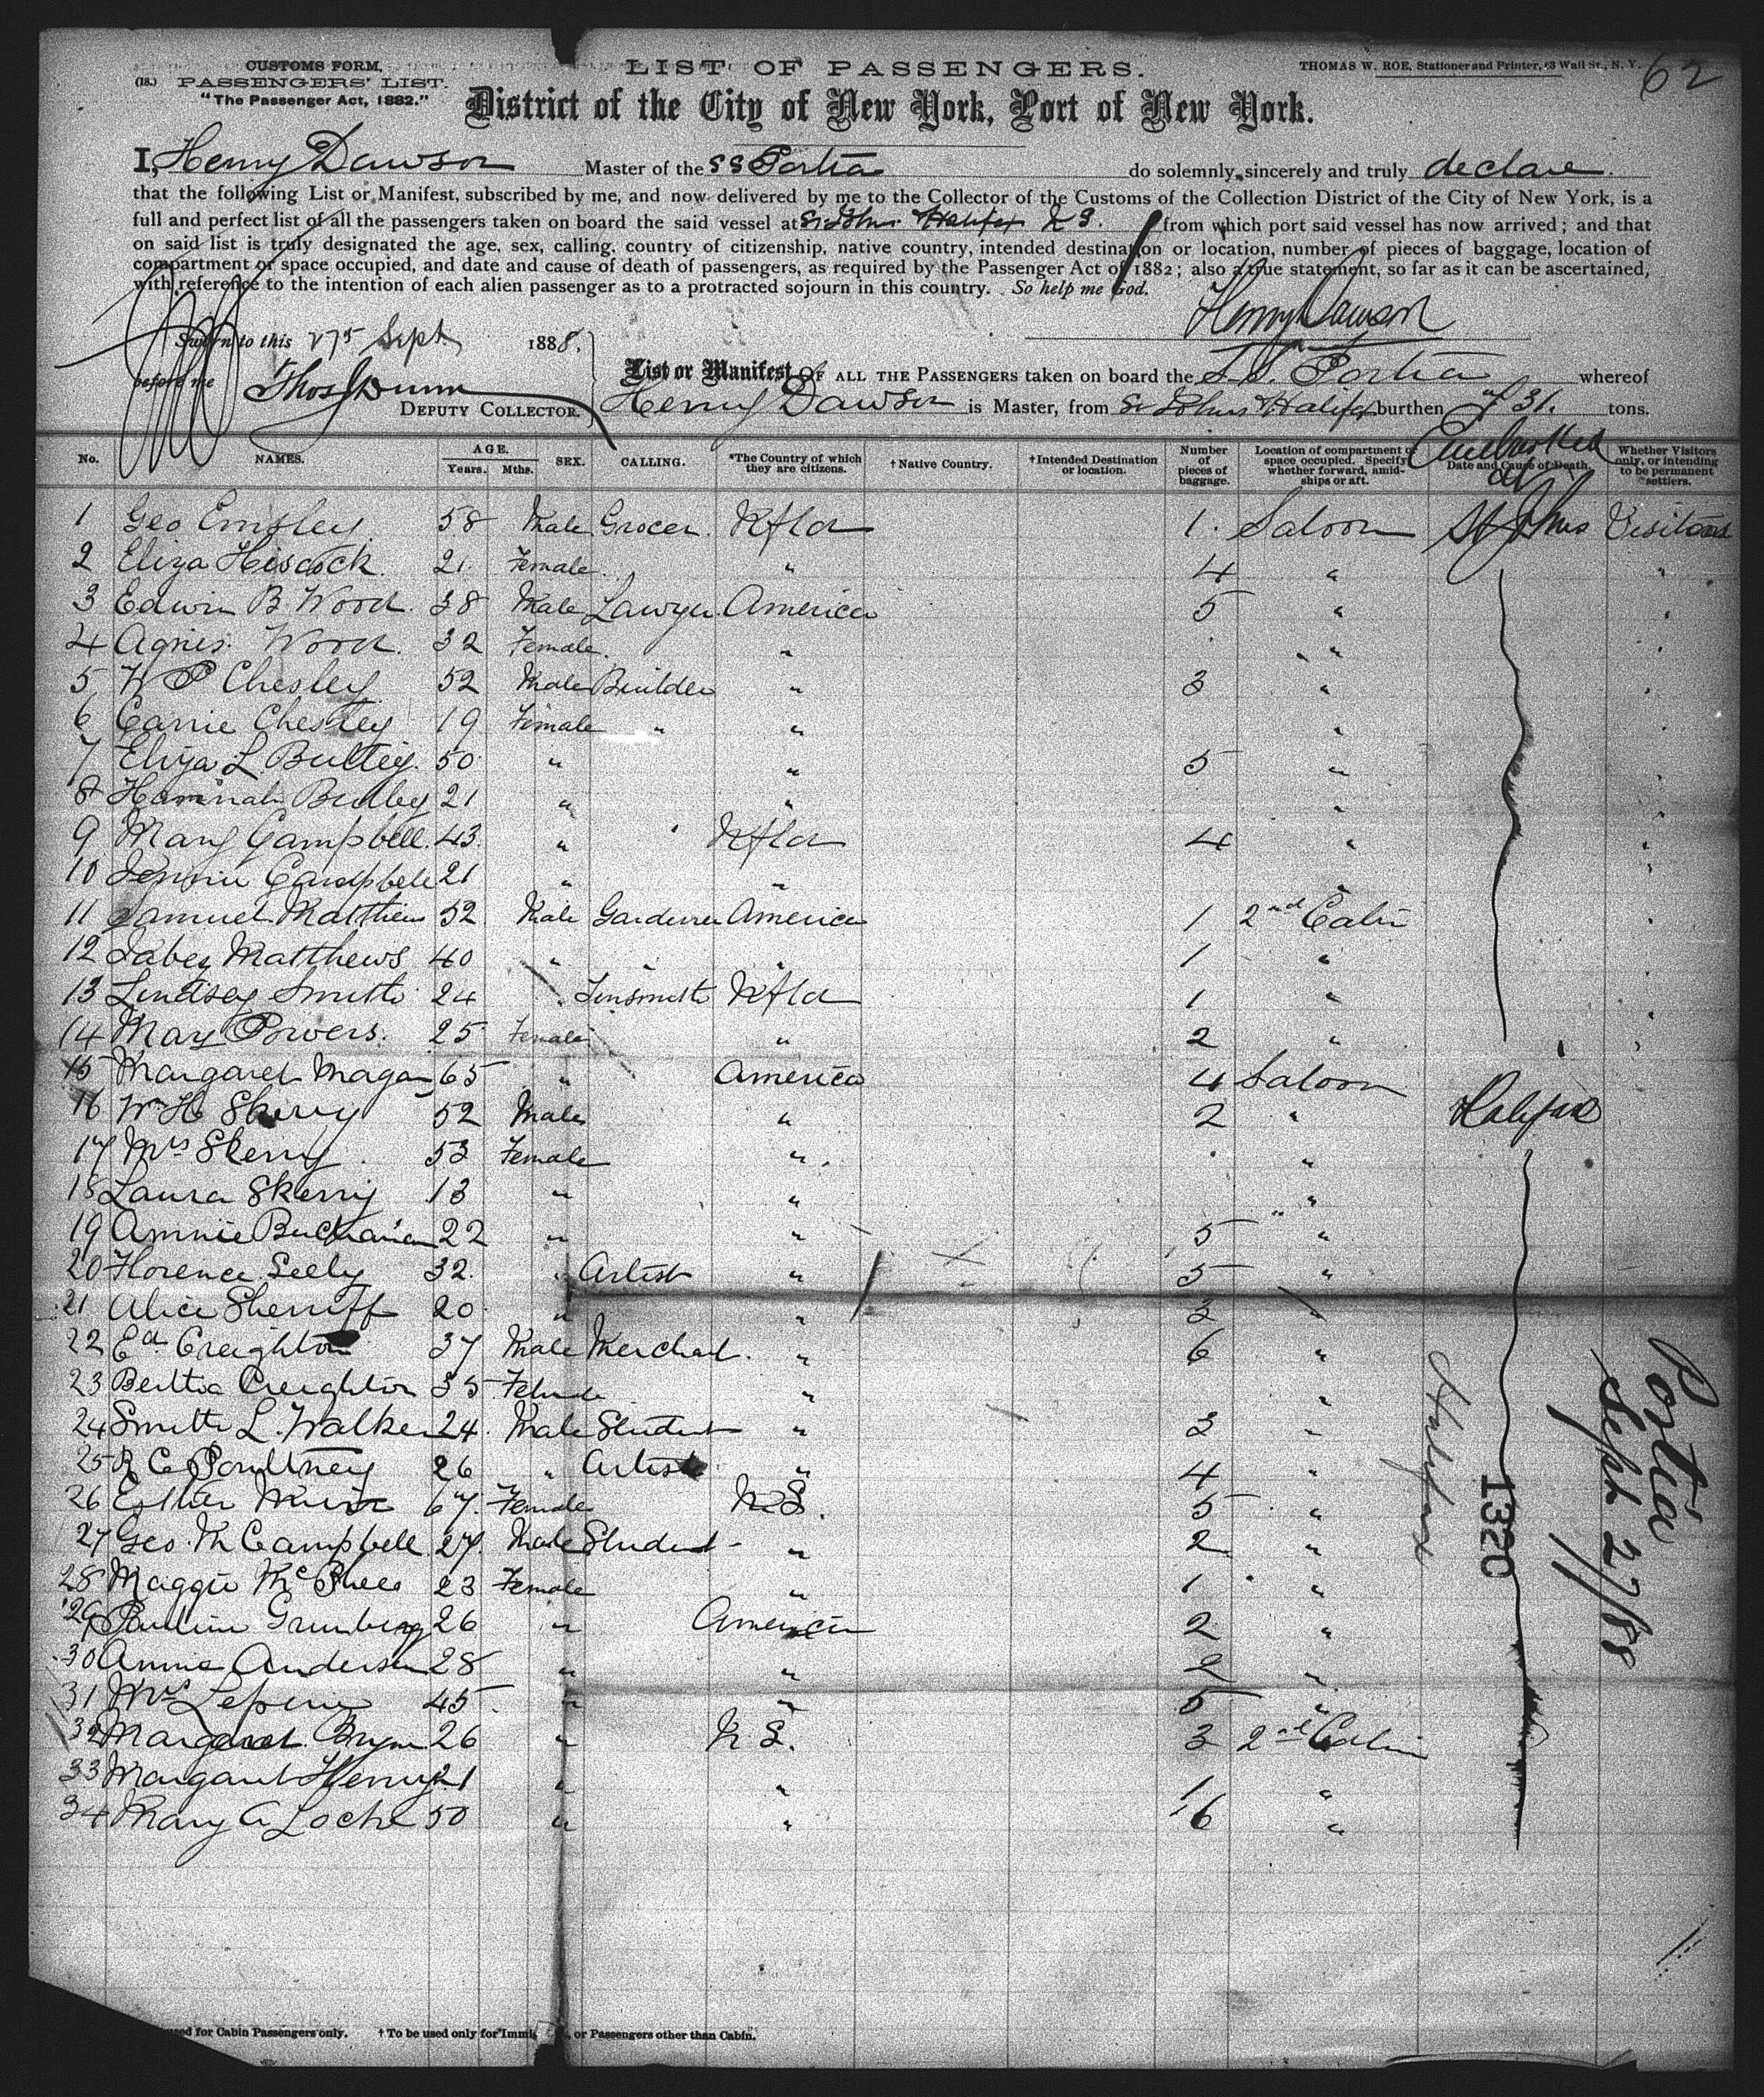 CUSTOMS FORM.
(18.) PASSENGERS' LIST.
"The Passenger Act, 1882."
LIST OF PASSENGERS.
THOMAS W. ROE, Stationer and Printer, 93 Wall St., N. Y.
62
District of the City of New York, Port of New York.
I, Henry Dawson Master of the SS Portia do solemnly, sincerely and truly declare.
that the following List or Manifest, subscribed by me, and now delivered by me to the Collector of the Customs of the Collection District of the City of New York, is a
full and perfect list of all the passengers taken on board the said vessel at St Johns Halifax N S. from which port said vessel has now arrived; and that
on said list is truly designated the age, sex, calling, country of citizenship, native country, intended destination or location, number of pieces of baggage, location of
compartment or space occupied, and date and cause of death of passengers, as required by the Passenger Act of 1882; also a true statement, so far as it can be ascertained,
with reference to the intention of each alien passenger as to a protracted sojourn in this country. So help me God.
Henry Dawson
Sworn to this 27 Sept 1888.
before me Thos Dunn
DEPUTY COLLECTOR.
List or Manifest OF ALL THE PASSENGERS taken on board the S.S. Portia whereof
Henry Dawson is Master, from St Johns Halifax burthen tons.
No. NAMES. AGE. Years. Mths. SEX. CALLING. *The Country of which they are citizens. †Native Country. †Intended Destination or location. Number of pieces of baggage. Location of compartment or space occupied. Specify whether forward, amidships or aft. Date and Cause of Death. Whether Visitors only, or intending to be permanent settlers.
Embarked at
1 Geo Emsley 58 Male Grocer Nfld 1 Saloon St Johns Visitors
2 Eliza Hiscock 21 Female " 4 " "
3 Edwin B Wood 38 Male Lawyer America 5 " "
4 Agnes Wood 32 Female " " "
5 W P Chesley 52 Male Builder " 3 " "
6 Carrie Chesley 19 Female " " " "
7 Eliza L. Bulley 50 " " 5 " "
8 Hannah Bulley 21 " " " "
9 Mary Campbell 43 " Nfld 4 " "
10 Jennie Campbell 21 " " " "
11 Samuel Matthews 52 Male Gardener America 1 2nd Cabin "
12 Jabez Matthews 40 " " " 1 " "
13 Lindsay Smith 24 " Tinsmith Nfld 1 " "
14 May Powers 25 Female " 2 " "
15 Margaret 65 " America 4 Saloon
16 Wm H Skerry 52 Male " 2 " Halifax
17 Mrs Skerry 53 Female " "
18 Laura Skerry 13 " " "
19 Annie Buchanan 22 " " 5 "
20 Florence Seely 32 " Artist " 5 "
21 Alice Sherriff 20 " " 3
22 Ed Creighton 37 Male Merchant " 6 "
23 Bertha Creighton 35 Female " "
24 Smith L. Walker 24 Male Student " 3 "
25 R C Poultney 26 " Artist " 4 "
26 Esther 67 Female N S. 5 "
27 Geo. M Campbell 27 Male Student " 2 "
28 Maggie McPhee 23 Female " 1 "
29 Pauline Grunberg 26 " America 2 "
30 Annie Anderson 28 " " 2 "
31 Mrs 45 " " 5 "
32 Margaret 26 " N S. 3 2nd Cabin
33 Margaret Henry 21 " " 1 "
34 Mary A Locke 50 " " 6 "
Halifax
1320
Portia
Sept 27/88
used for Cabin Passengers only. †To be used only for or Passengers other than Cabin.